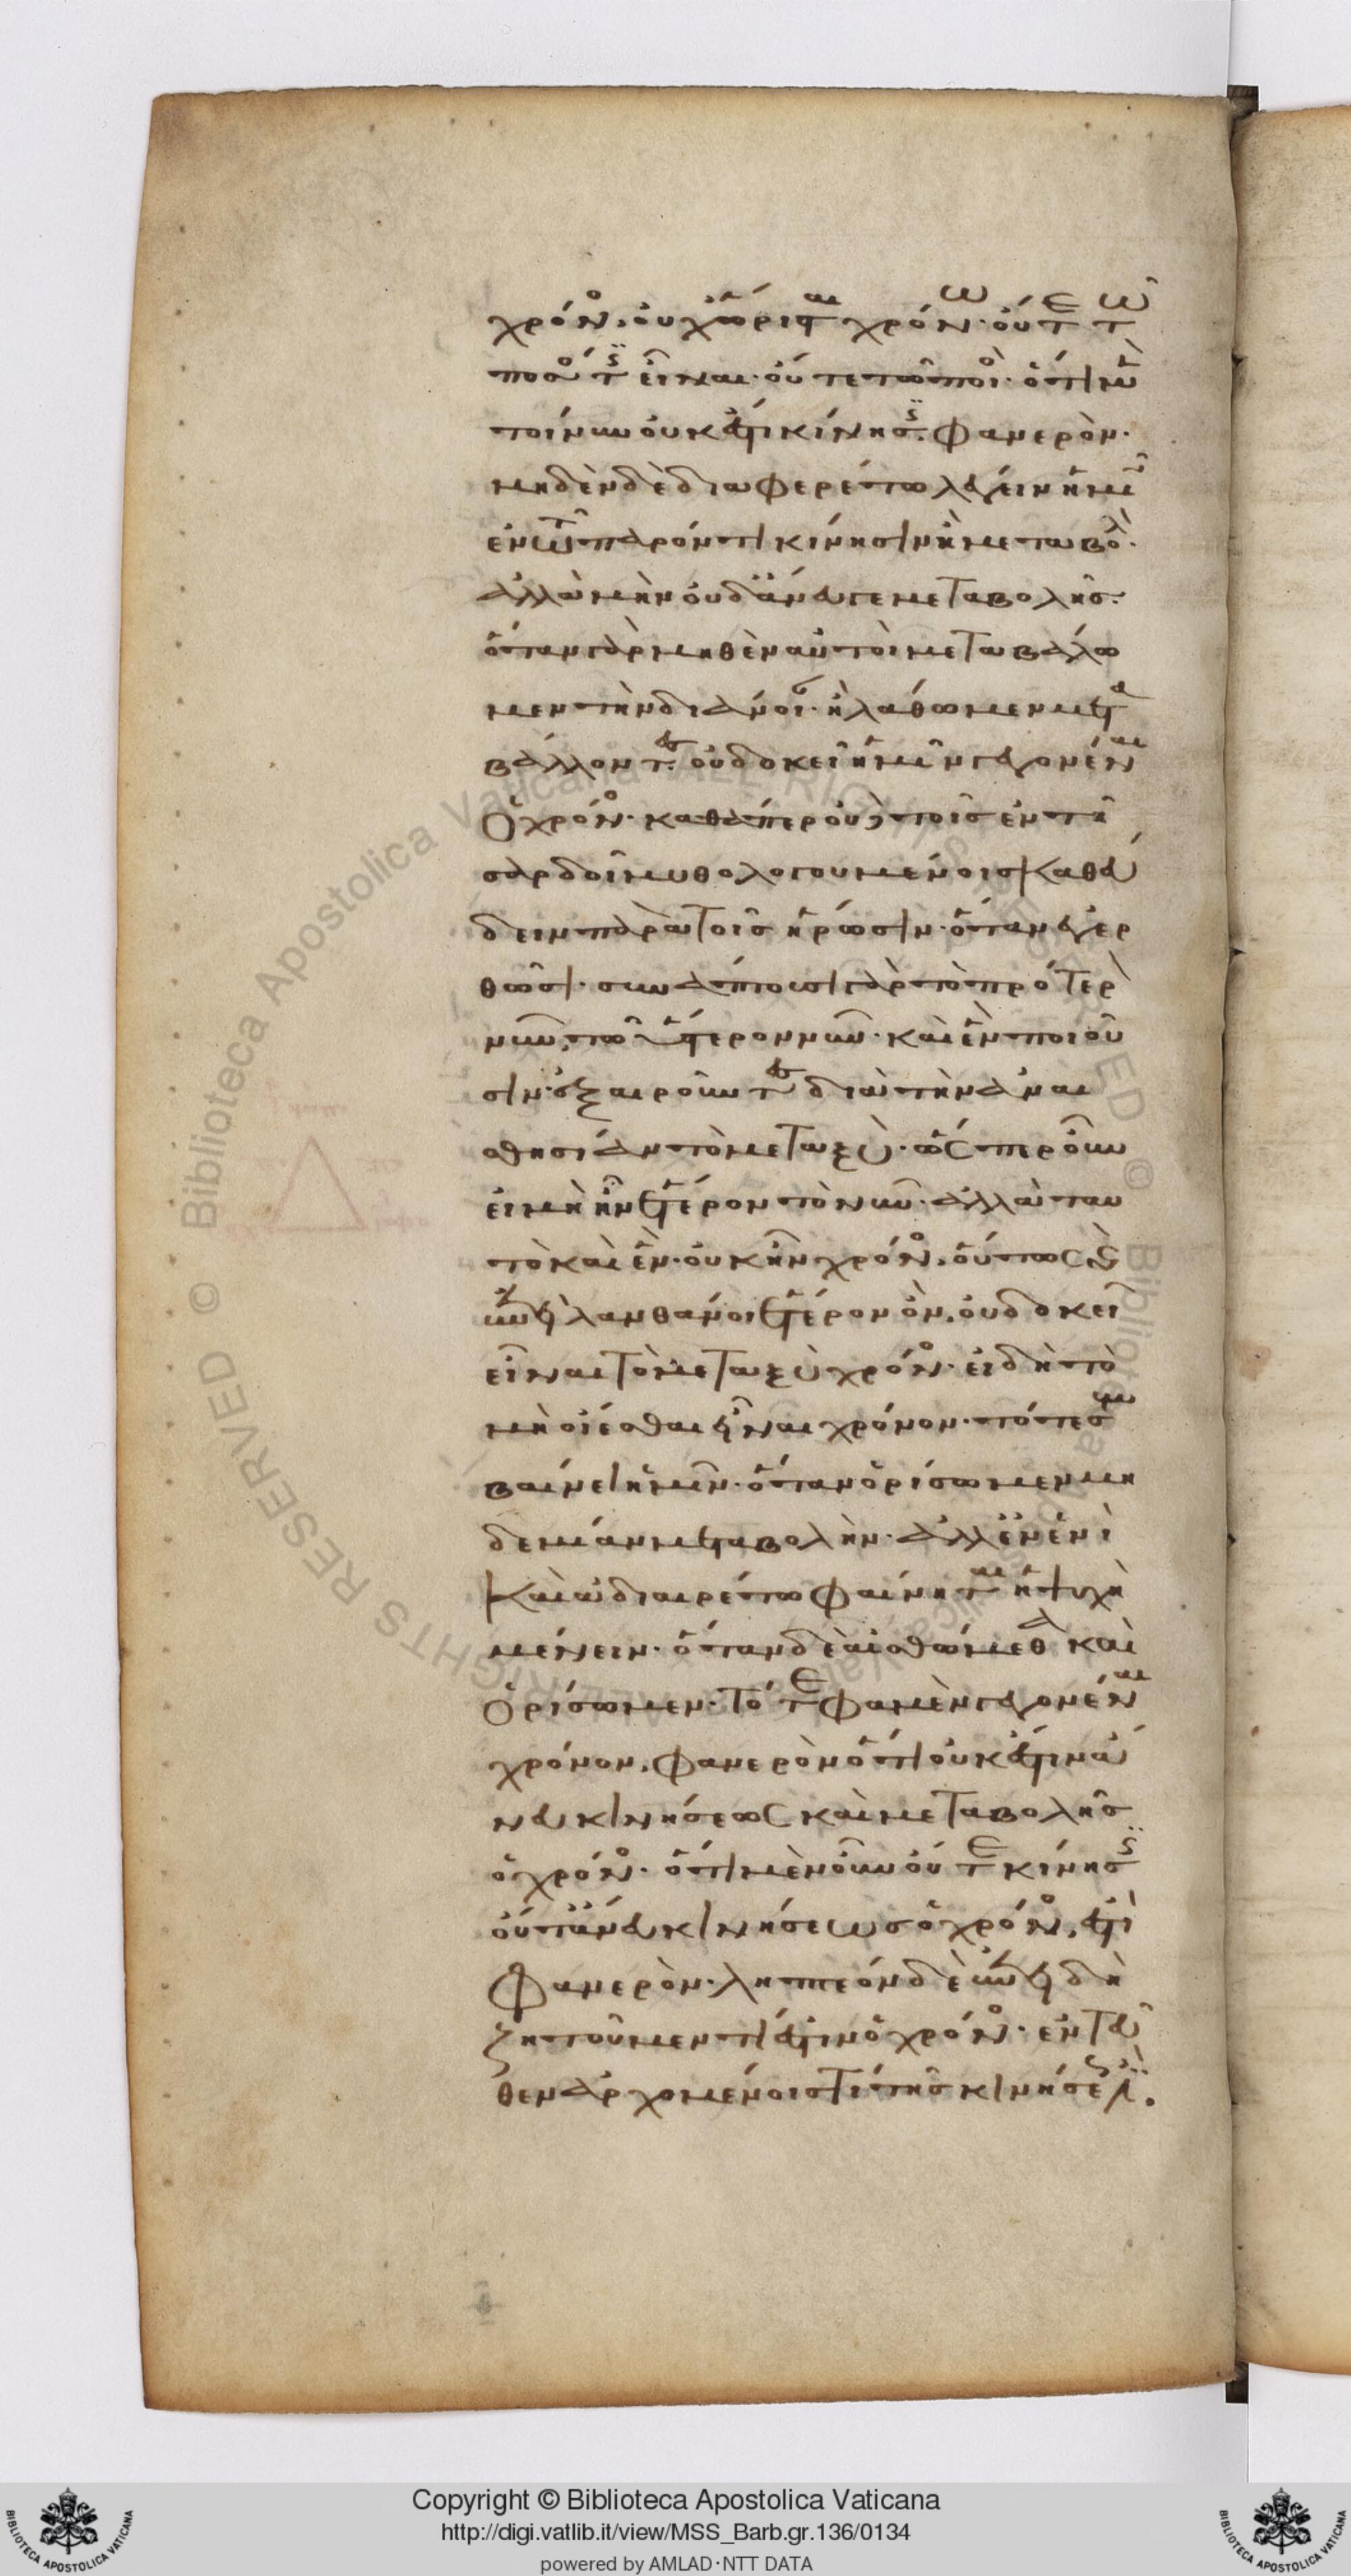 χρόνος. οὐχ ὥρισται χρόνω· οὔτε τῶ
ποσός τις εἶναι· οὔτε τῶ ποιός· ὅτι μὲν
τοίνυν οὐκ ἔστι κίνησις. φανερόν·
μηδὲν δὲ διαφερέτω λέγειν ἡμῖν
ἐν τῶ παρόντι κίνησιν ἢ μεταβολὴν·
ἀλλὰ μὴν οὐδ' ἄνευ γε μεταβολῆς·
ὅταν γὰρ μηθὲν αὐτοὶ μεταβάλλω
μεν τὴν διάνοιαν· ἢ λάθωμεν μετα
βάλλοντες. οὐ δοκεῖ ἡμῖν γεγονέναι
ὁ χρόνος· καθάπερ οὐδὲ τοῖς ἐν τῆ
σαρδοῖ μυθολογουμένοις καθεύ
δειν παρὰ τοῖς ἥρωσιν· ὅταν ἐγερ
θῶσι· συνάπτουσι γὰρ τὸ πρότερον
νῦν, τῶ ὕστερον νῦν· καὶ ἓν ποιοῦ
σιν· ἐξαιροῦντες διὰ τὴν ἀναι
σθησίαν τὸ μεταξὺ· ὥσπερ οὖν
εἰ μὴ ἦν ἕτερον τὸ νῦν· ἀλλὰ ταυ
τὸ καὶ ἓν· οὐκ ἦν χρόνος. οὕτως καὶ
ἐπεὶ λανθάνει ἕτερον ὂν. οὐ δοκεῖ
εἶναι τὸ μεταξὺ χρόνος· εἰ δὴ τὸ
μὴ οἴεσθαι εἶναι χρόνον· τότε συμ
βαίνει ἡμῖν· ὅταν ὁρίσωμεν μη
δεμίαν μεταβολὴν· ἀλλ' ἐν ἑνὶ
καὶ ἀδιαιρέτω φαίνηται ἡ ψυχὴ
μένειν· ὅταν δὲ αἰσθώμεθα καὶ
ὁρίσωμεν· τότε φαμὲν γεγονέναι
χρόνον. φανερὸν ὅτι οὐκ ἔστιν ἄ
νευ κινήσεως καὶ μεταβολῆς
ὁ χρόνος· ὅτι μὲν οὖν οὔτε κίνησις
οὔτ' ἄνευ κινήσεως ὁ χρόνος. ἐστὶ
φανερὸν· ληπτέον δὲ ἐπεὶ δὴ
ζητοῦμεν τί ἐστιν ὁ χρόνος· ἐντεῦ
θεν ἀρχομένοις τί τῆς κινήσεώς ἐστιν.
Copyright © Biblioteca Apostolica Vaticana
http://digi.vatlib.it/view/MSS_Barb.gr.136/0134
powered by AMLAD·NTT DATA